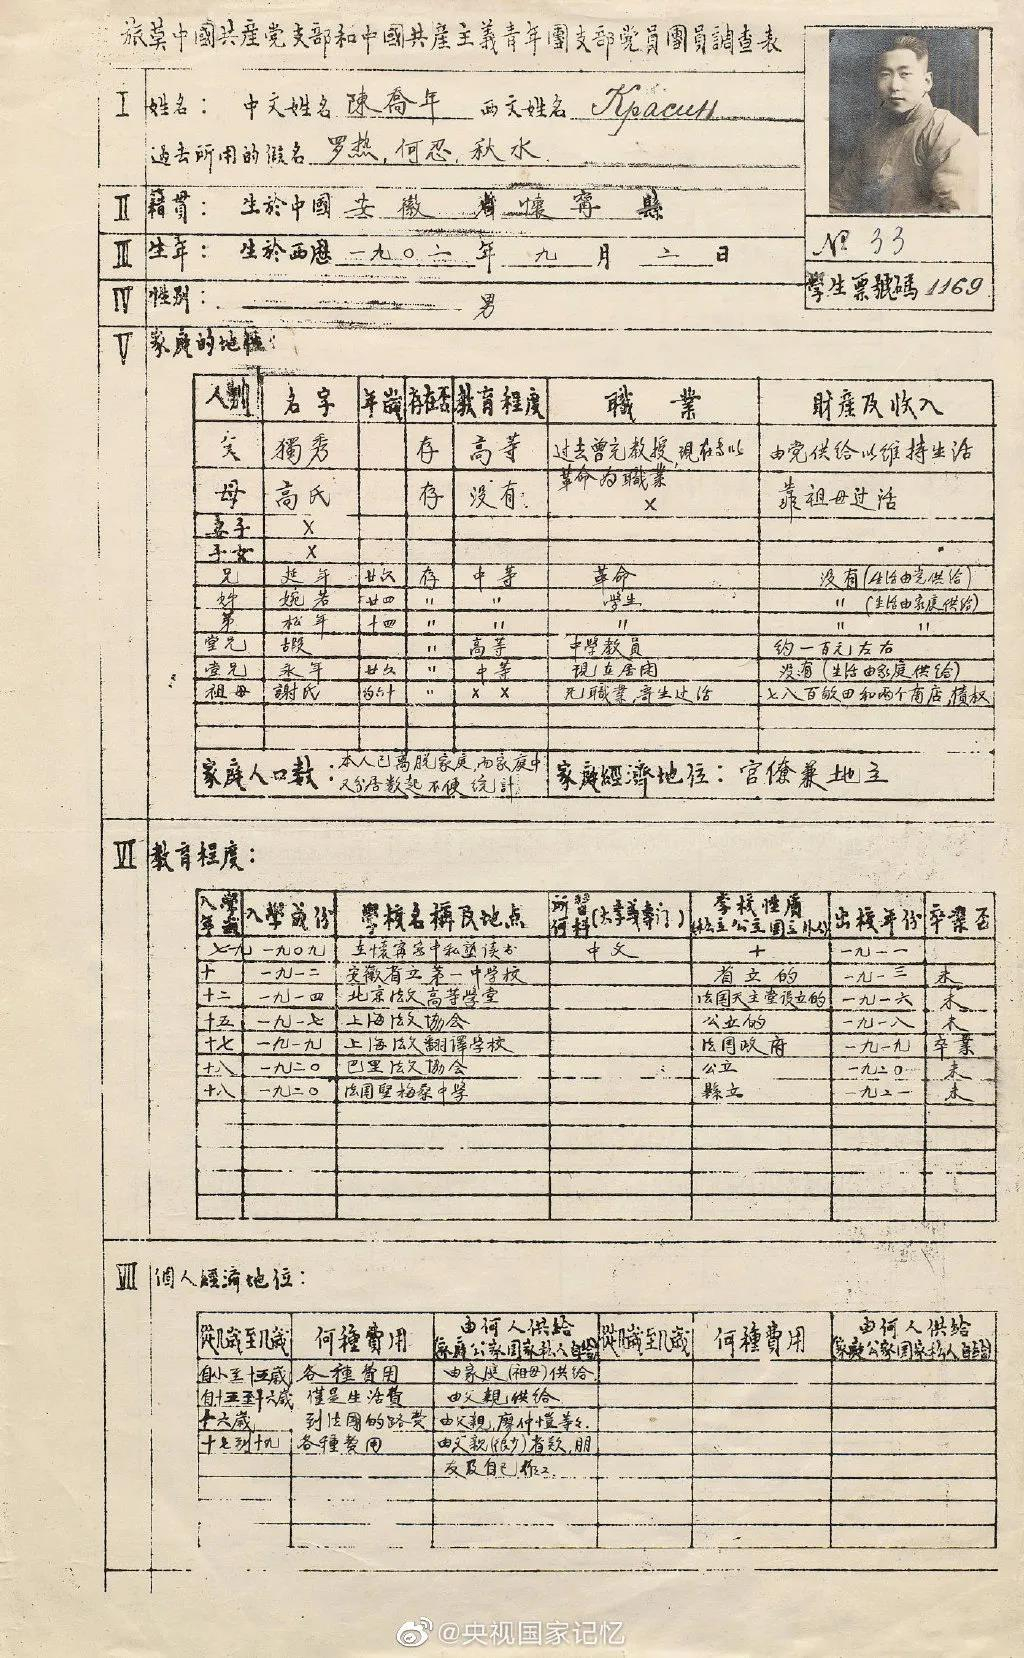 旅莫中國共產党支部和中國共產主義青年團支部党員團員調查表
I 姓名： 中文姓名 陳喬年 西文姓名 Красин
過去所用的假名 罗热，何忍，秋水
II 籍貫： 生於中國 安徽 省 懷寧 縣
III 生年： 生於西歷 一九〇二 年 九 月 二 日
IV 性别： 男
№ 33
學生票號碼 1169
V 家庭的地位：
人别 名字 年歲 存在否 教育程度 職業 財產及收入
父 獨秀 存 高等 过去曾充教授，現在专以革命为職業 由党供给以维持生活
母 高氏 存 没有 × 靠祖母过活
妻子 ×
子女 ×
兄 延年 廿六 存 中等 革命 没有(生活由党供给)
婉若 廿四 〃 〃 学生 〃 (生活由家庭供给)
弟 松年 十四 〃 〃 〃 〃 〃
堂兄 遐 〃 高等 中學教員 约一百元左右
堂兄 永年 廿六 〃 中等 現在居闲 没有(生活由家庭供给)
祖母 謝氏 〃 × × 无職業，寄生过活 七八百畝田和两个商店，債权
家庭人口數： 本人已离脱家庭，而家庭中又分居数起不便统計 家庭經濟地位： 官僚兼地主
VI 教育程度：
入學年歲 入學歲份 學校名稱及地点 所習何科(大学義專门) 李校性质(私立公立國立外份) 出校年份 卒業否
七九 一九〇九 在懷寧家中私塾读书 中文 + 一九一一
十一 一九一二 安徽省立第一中学校 省立的 一九一三 未
十二 一九一四 北京法文高等学堂 法国天主堂设立的 一九一六 未
十五 一九一七 上海法文協会 公立的 一九一八 未
十七 一九一九 上海法文翻譯学校 法国政府 一九一九 卒業
十八 一九二〇 巴里法文協会 公立 一九二〇 未
十八 一九二〇 法国聖梅桑中学 縣立 一九二一 未
VII 個人經濟地位：
從几歲到几歲 何種費用 由何人供给(家庭公家国家私人自给) 從几歲到几歲 何種費用 由何人供给(家庭公家国家私人自给)
自小至十五歲 各種費用 由家庭(祖母)供给
自十五至十六歲 僅是生活費 由父親供给
十六歲 到法國的路費 由父親，廖仲愷等等
十七到十九 各種费用 由父親(很少)者欵，朋友及自己作工
@央视国家记忆